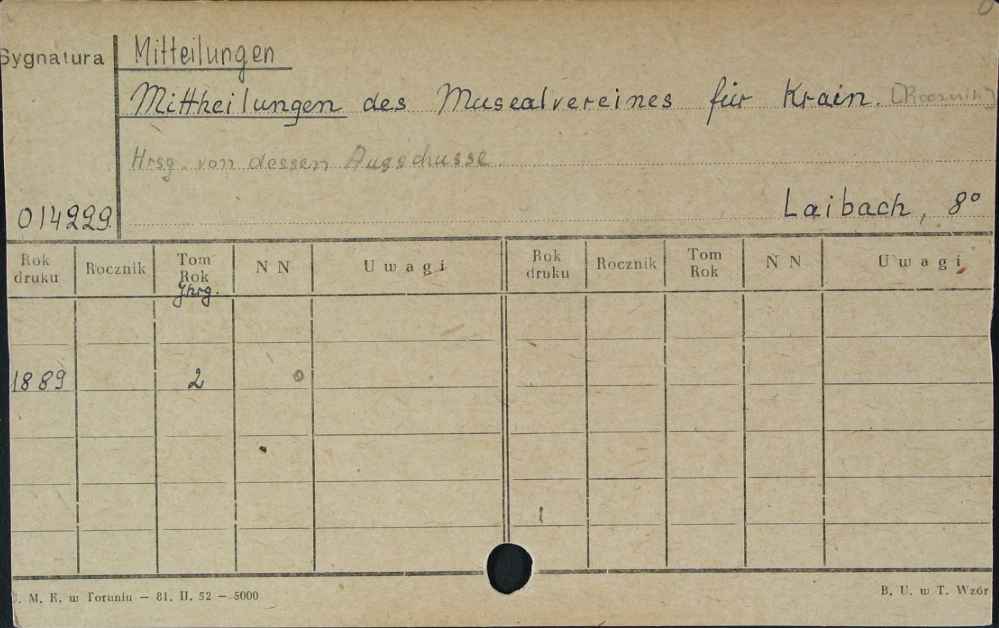 Sygnatura Mitteilungen
Mittheilungen des Musealvereines für Krain. [Rocznik]
Hrsg. von dessen Ausschusse.
014229. Laibach, 8°
Rok druku Rocznik Tom Rok Jhrg. N N Uwagi Rok druku Rocznik Tom Rok N N Uwagi
1889 2 0
U. M. K. w Toruniu — 81. II. 52 — 5000 B. U. w T. Wzór